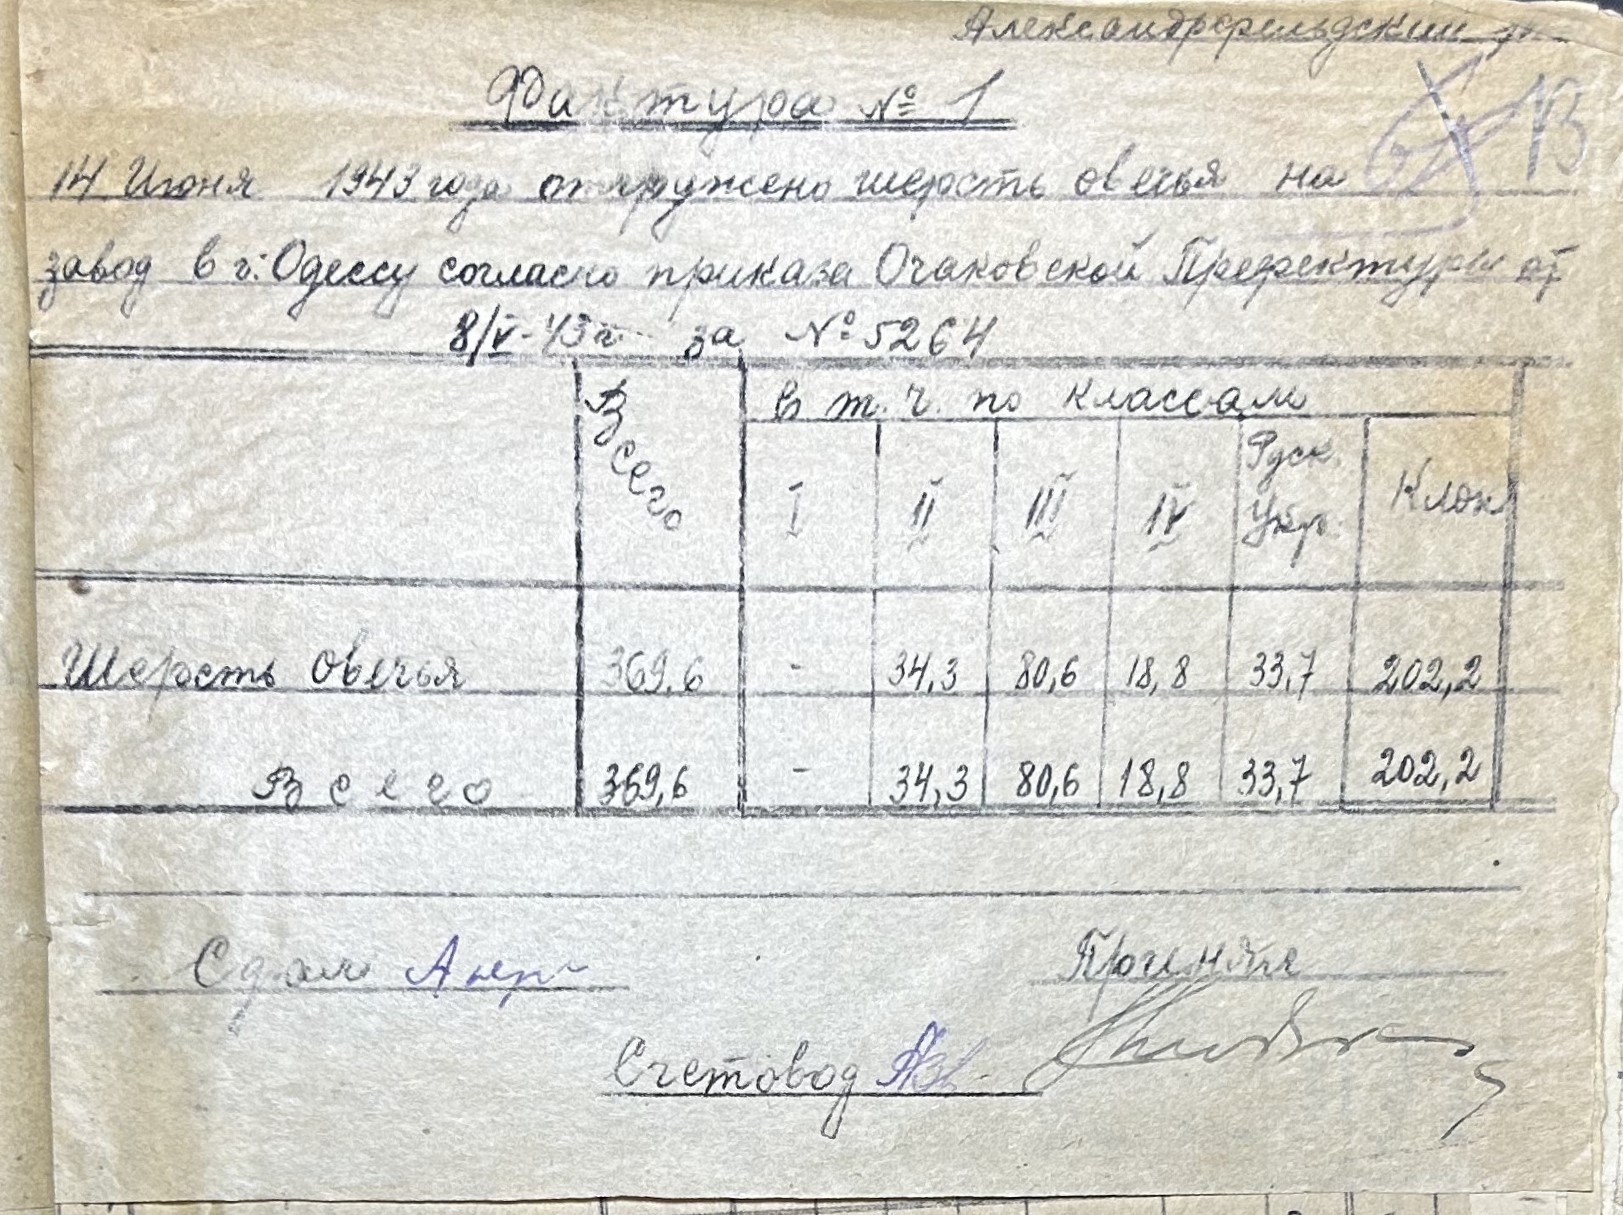 Александрфельдский
Фактура № 1
13
14 Июня 1943 года отгружено шерсть овечья на
завод в г. Одессу согласно приказа Очаковской Префектуры от
8/V-43 г. за № 5264
Всего
в т. ч. по классам
I II III IV Руск. Укр. Клок
Шерсть овечья 369.6 - 34,3 80,6 18,8 33,7 202,2
Всего 369,6 - 34,3 80,6 18,8 33,7 202,2
Сдал
Принял
Счетовод